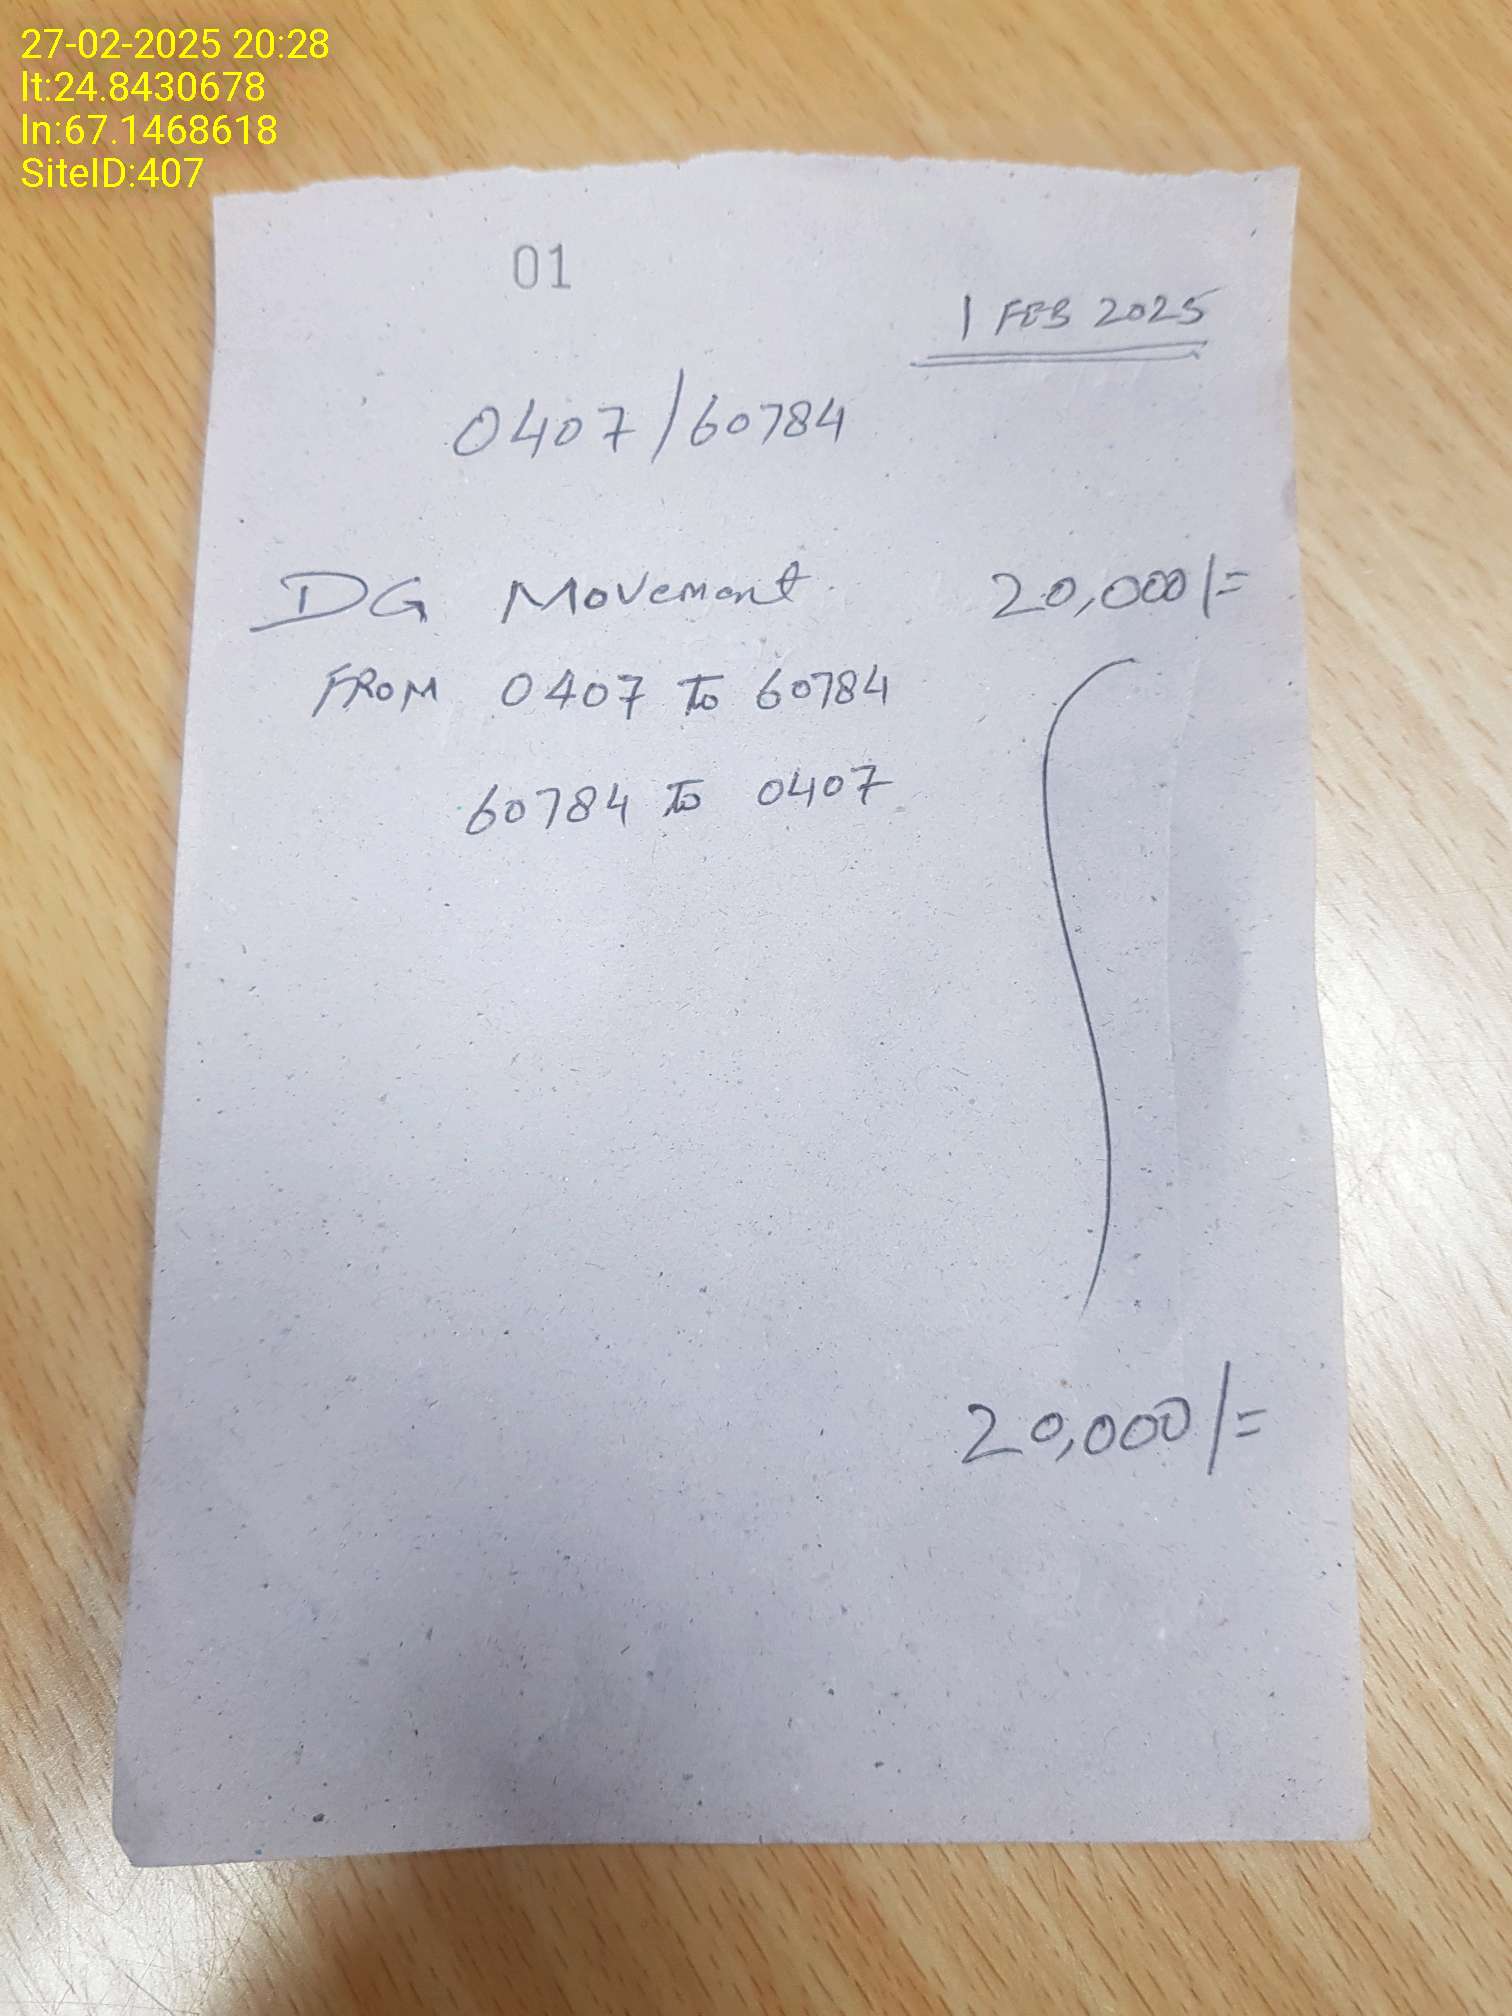 27-02-2025 20:28
lt:24.8430678
ln:67.1468618
SiteID:407
01
1 FEB 2025
0407/60784
DG Movement 20,000/=
FROM 0407 To 60784
60784 To 0407
20,000/=